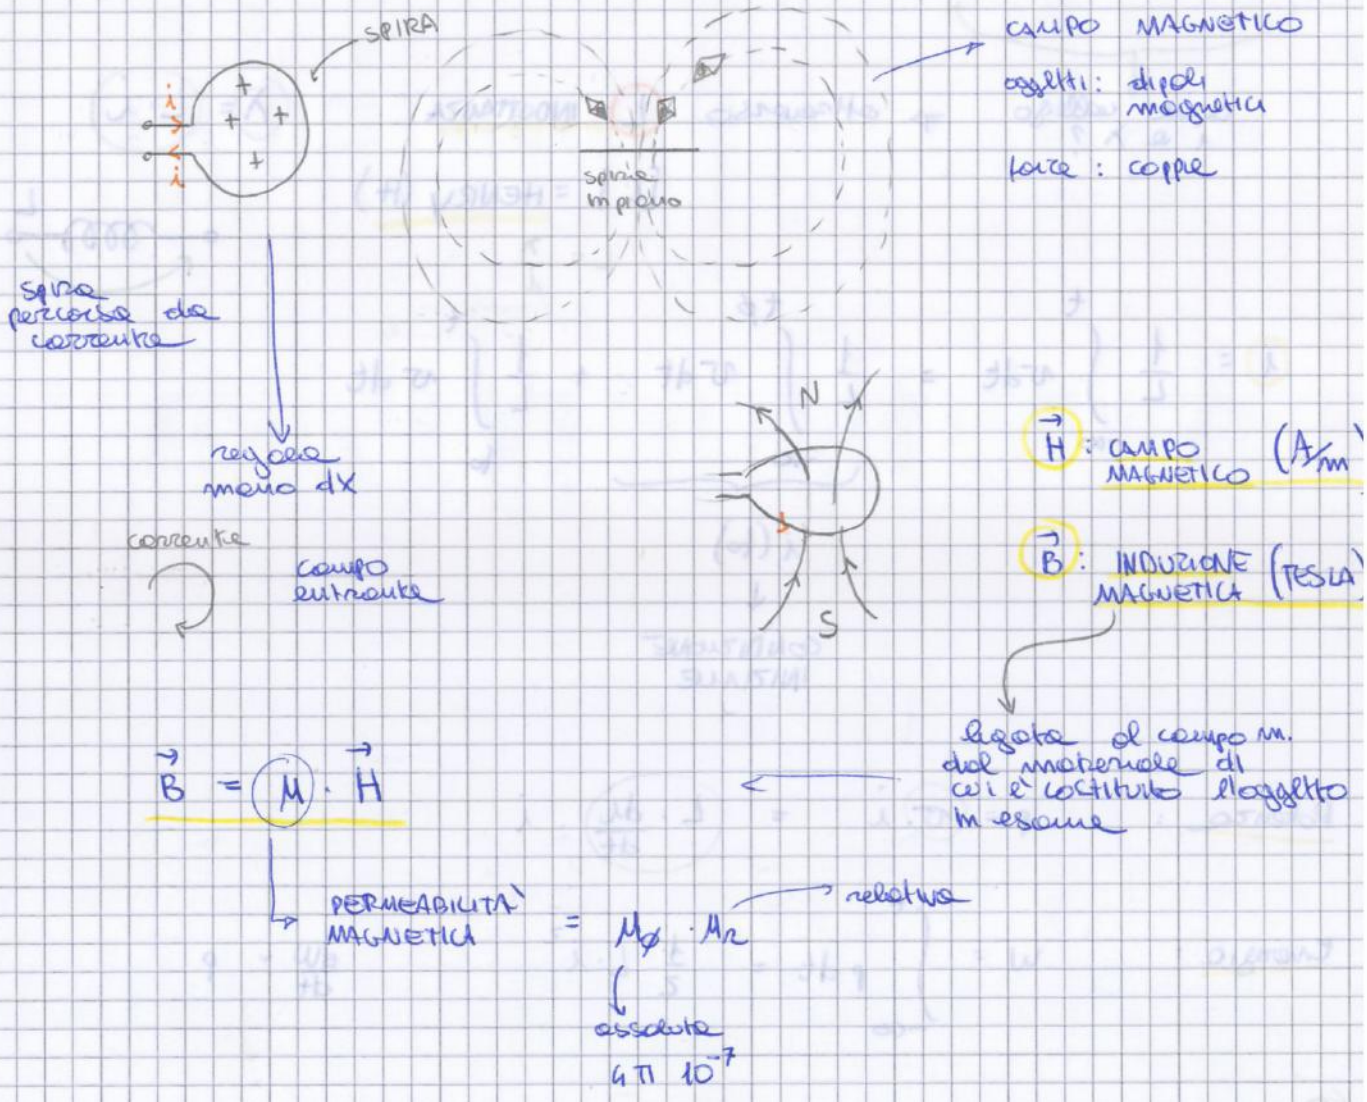 SPIRA
i
+
+ +
+
i
spira
in piano
CAMPO MAGNETICO
oggetti: dipoli
magnetici
forze: coppie
spira
percorsa da
corrente
regola
mano dx
corrente
campo
entrante
N
S
H: CAMPO (A/m)
MAGNETICO
B: INDUZIONE (TESLA)
MAGNETICA
legata al campo m.
dal materiale di
cui è costituito l'oggetto
in esame
B = μ · H
PERMEABILITA' = μ0 · μr
MAGNETICA
relativa
assoluta
4π 10^-7